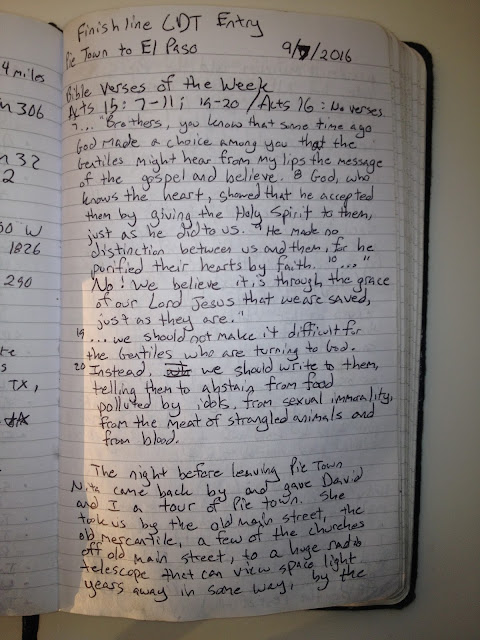 Finish line CDT Entry
Pie Town to El Paso 9/7/2016
Bible Verses of the Week
Acts 15: 7-11; 19-20 / Acts 16: No verses
7... "Brothers, you know that some time ago
God made a choice among you that the
Gentiles might hear from my lips the message
of the gospel and believe. 8 God, who
knows the heart, showed that he accepted
them by giving the Holy Spirit to them,
just as he did to us. 9 He made no
distinction between us and them, for he
purified their hearts by faith. 10 ..." 11
No! We believe it is through the grace
of our Lord Jesus that we are saved,
just as they are."
19 ... we should not make it difficult for
the Gentiles who are turning to God.
20 Instead, we should write to them,
telling them to abstain from food
polluted by idols, from sexual immorality,
from the meat of strangled animals and
from blood.
The night before leaving Pie Town
Nita came back by and gave David
and I a tour of Pie town. She
took us by the old main street, the
old mercantile, a few of the churches
off old main street, to a huge radio
telescope that can view space light
years away in some way, by the
4 miles
306
32
2
W
1826
290
TX,